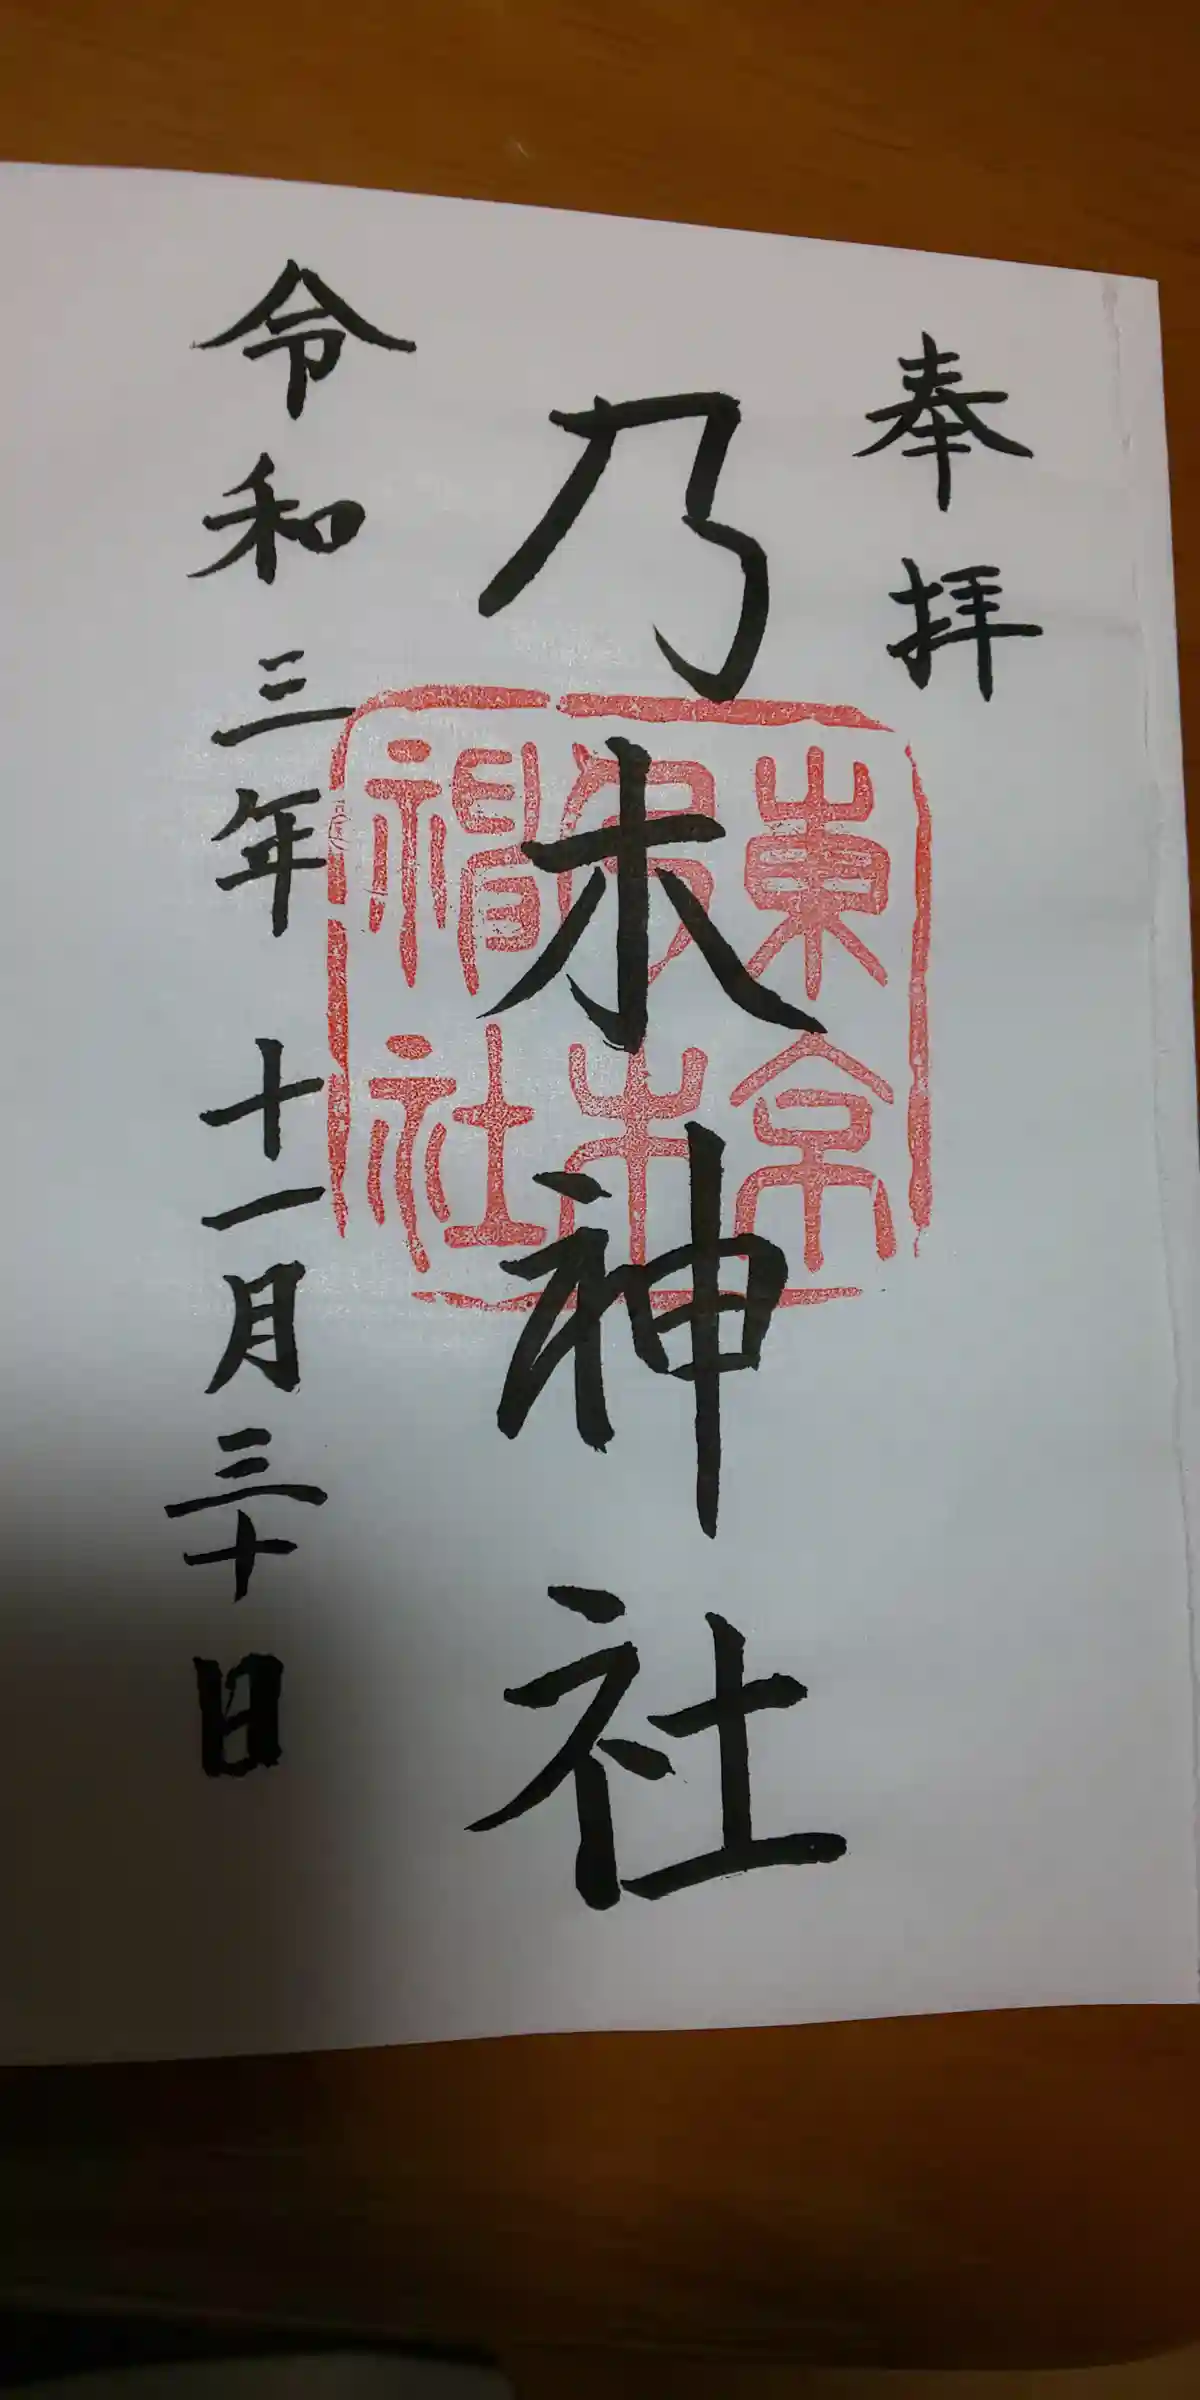 奉拝
乃木神社
東京
乃木
神社
令和三年十一月三十日